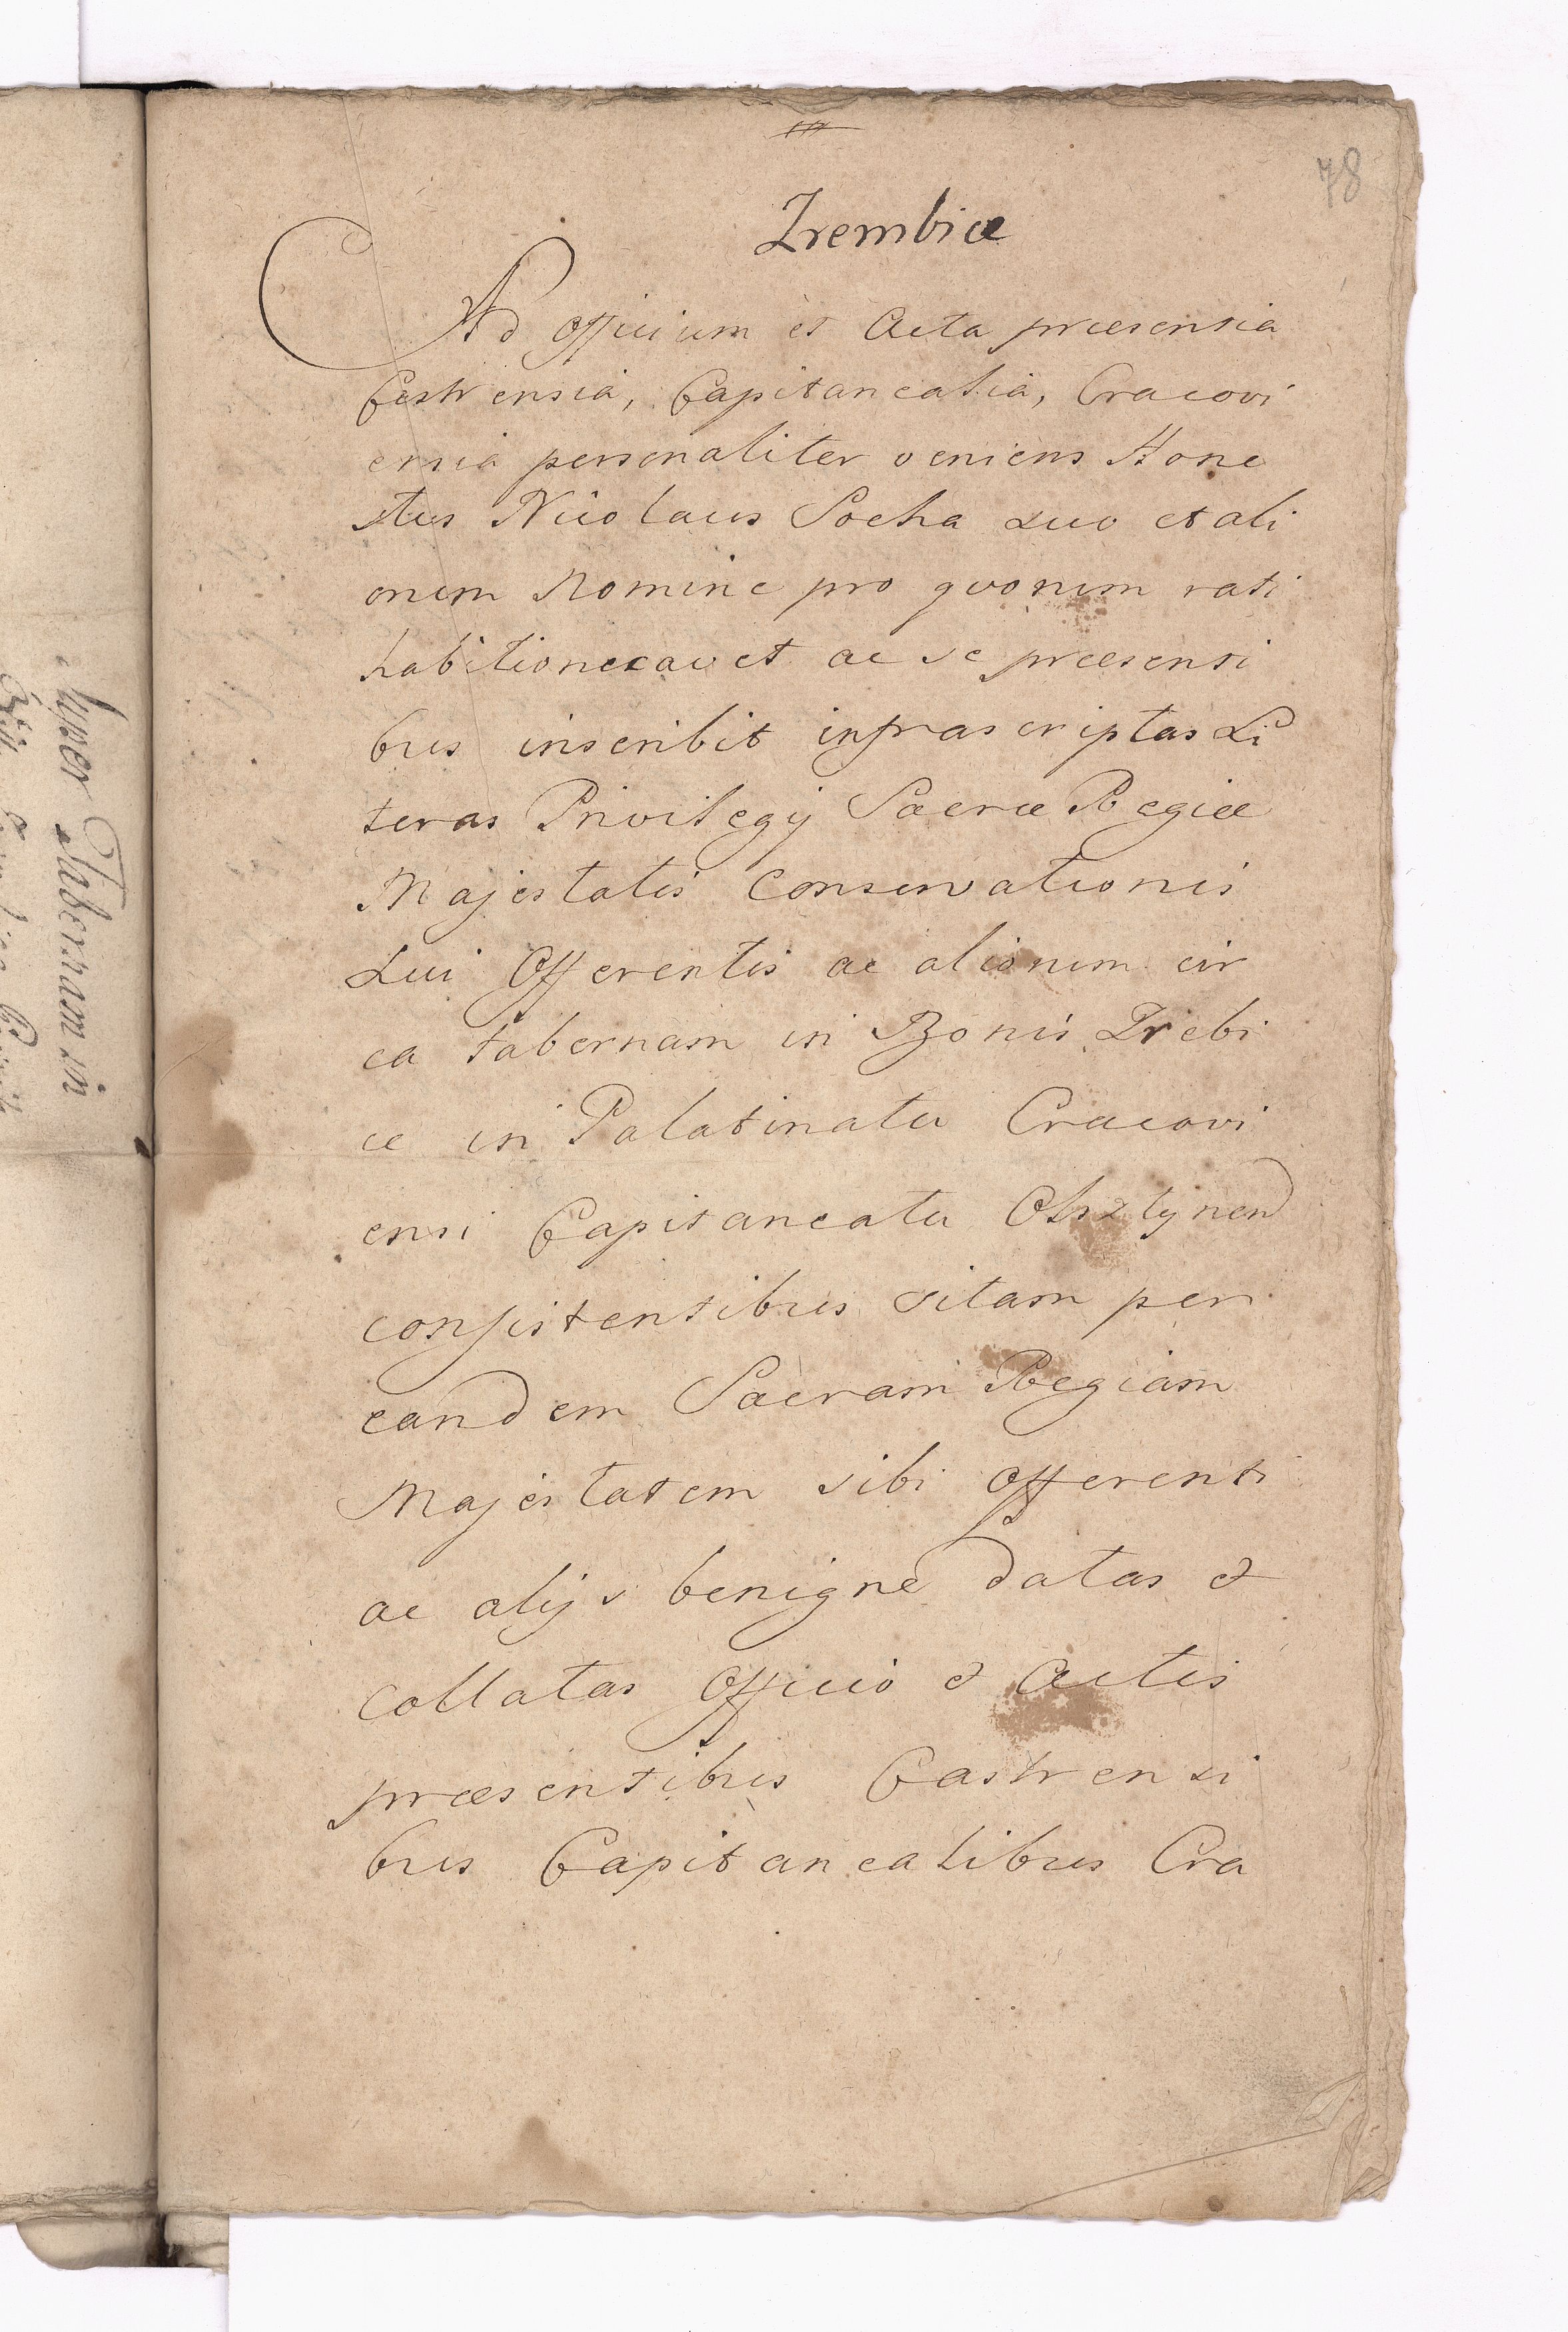 78
Trembiæ
Ad Officium et Acta præsentia
Castrensia, Capitanealia, Cracovi
ensia personaliter veniens Hone
stus Nicolaus Socha suo et ali
orum Nomine pro qvorum rati
habitione cavet ac se præsenti
bus inscribit infrascriptas Li
teras Privilegij Sacræ Regiæ
Majestatis Conservationis
Sui Offerentis ac aliorum cir
ca tabernam in Bonis Trebi
æ in Palatinatu Cracovi
ensi Capitaneatu Olsztynen
consistentibus vitam per
eandem Sacram Regiam
Majestatem sibi Offerenti
ac alijs benigne datas et
Collatas Officio et Actis
præsentibus Castrensi
bus Capitanealibus Cra
super Tabernam in